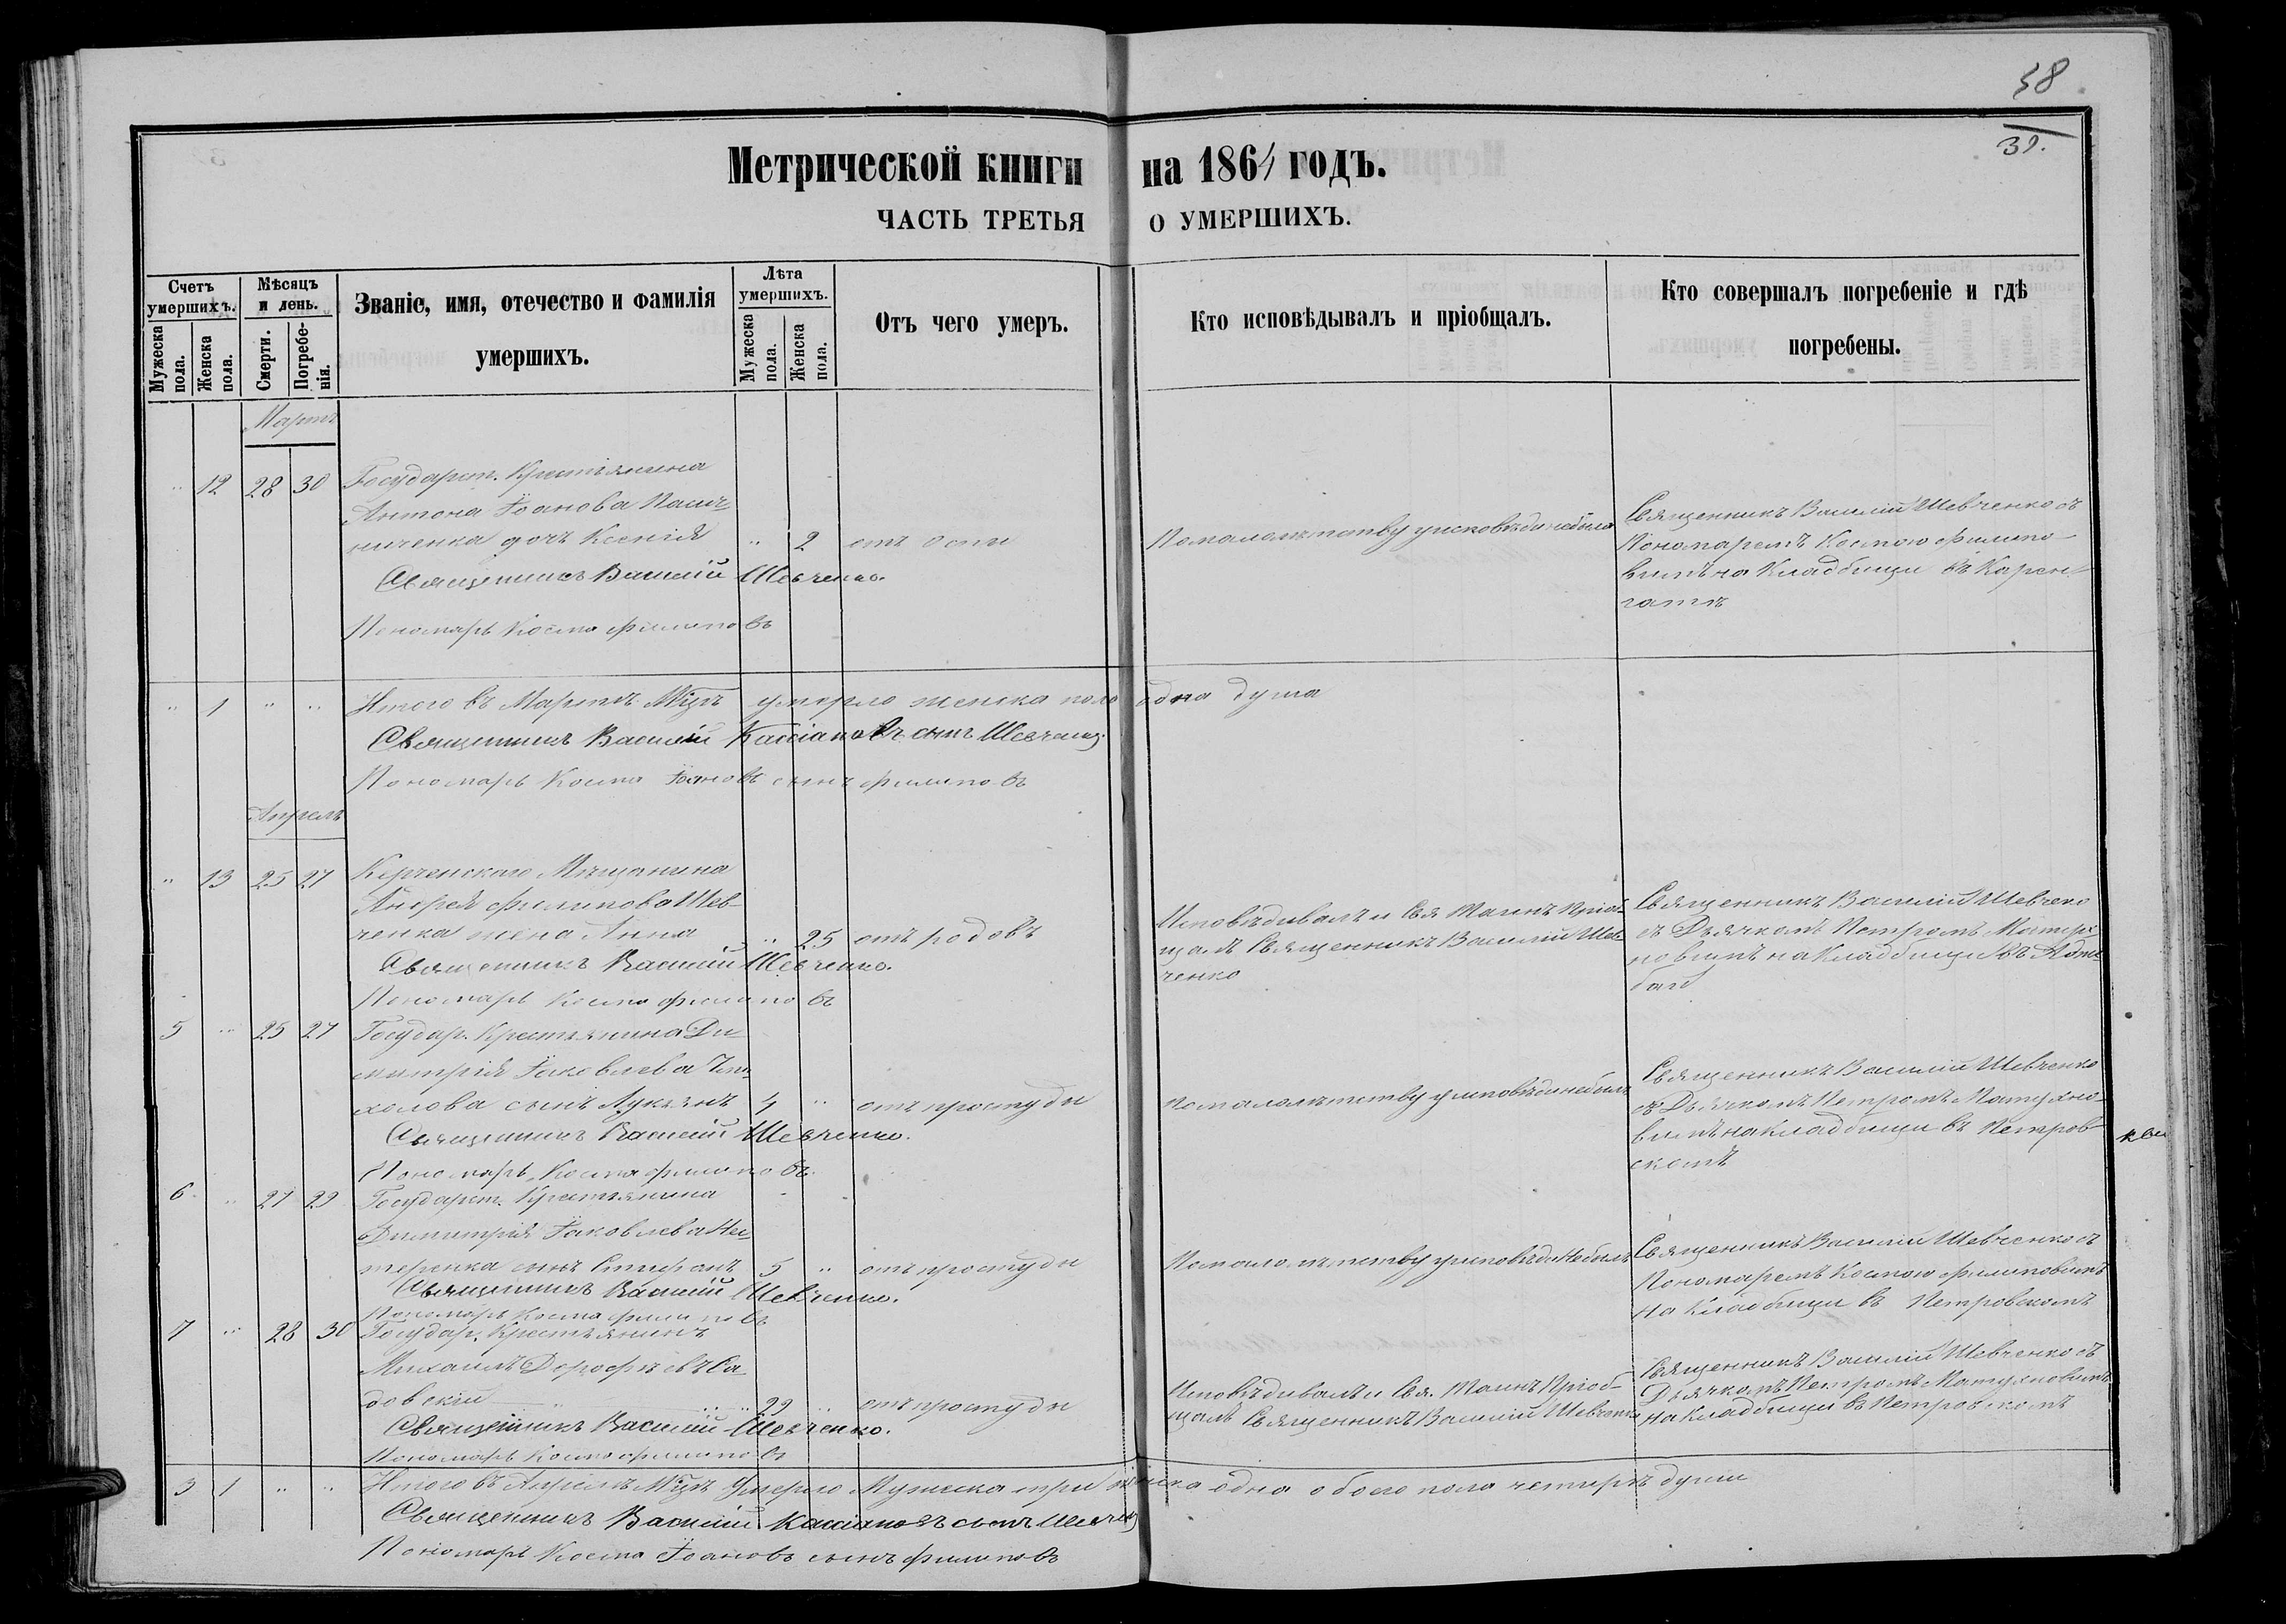 38
39.
Метрической книги на 1864 годъ.
ЧАСТЬ ТРЕТЬЯ О УМЕРШИХЪ.
Счетъ умершихъ.
Мѣсяцъ и день.
Званіе, имя, отечество и фамилія умершихъ.
Лѣта умершихъ.
Отъ чего умеръ.
Кто исповѣдывалъ и пріобщалъ.
Кто совершалъ погребеніе и гдѣ погребены.
Мужеска пола.
Женска пола.
Смерти.
Погребенія.
Мужеска пола.
Женска пола.
Мартъ
" 12 28 30 Государст. Крестьянина
Антона Іоанова
ниченка дочь Ксенія " 2 отъ оспы
Священникъ Василій Шевченко.
Пономарь Косма Филиповъ
По малолѣтству у исповѣди небыла
Священникъ Василій Шевченко съ
Пономаремъ Космою Филипо-
вимъ на Кладбищи въ
" 1 " " Итого въ Мартѣ Мцѣ умерло женска пола одна душа
Священникъ Василій Кассіановъ сынъ Шевченко
Пономарь Косма Іоановъ сынъ Филиповъ
Апрель
" 13 25 27 Керченскаго Мѣщанина
Андрея Филипова Шев-
ченка жена Анна " 25 отъ родовъ
Священникъ Василій Шевченко.
Пономарь Косма Филиповъ
Исповѣдивалъ и Свя. Таинъ Пріоб-
щалъ Священникъ Василій Шев-
ченко
Священникъ Василій Шевченко
съ Дьячкомъ Петромъ
новимъ на Кладбищи въ
5 " 25 27 Государ. Крестьянина Ди-
митрія Іаковлева
холова сынъ Лукьянъ 4 " отъ простуды
Священникъ Василій Шевченко.
Пономарь Косма Филиповъ
По малолѣтству у исповѣди небылъ
Священникъ Василій Шевченко
съ Дьячкомъ Петромъ Матухно-
вимъ на кладбищи въ Петров-
скомъ
6 " 27 29 Государст. Крестьянина
Димитрія Іаковлева Не-
теренка сынъ Стефанъ 5 " отъ простуды
Священникъ Василій Шевченко.
Пономарь Косма Филиповъ
По малолѣтству у исповѣди Небылъ
Священникъ Василій Шевченко съ
Пономаремъ Космою Филиповимъ
На Кладбищи въ Петровскомъ
7 " 28 30 Государ. Крестьянинъ
Михаилъ Дорофѣевъ Са-
довскій 29 " отъ простуды
Священникъ Василій Шевченко.
Пономарь Косма Филиповъ
Исповѣдивалъ и Свя. Таинъ Пріоб-
щалъ Священникъ Василій Шевченко
Священникъ Василій Шевченко съ
Дьячкомъ Петромъ Матухновимъ
на Кладбищи въ Петровскомъ
3 1 " " Итого въ Апрелѣ Мцѣ Умерло Мужеска три женска одна обоего пола четыре души
Священникъ Василій Кассіановъ сынъ Шевченко
Пономарь Косма Іоановъ сынъ Филиповъ